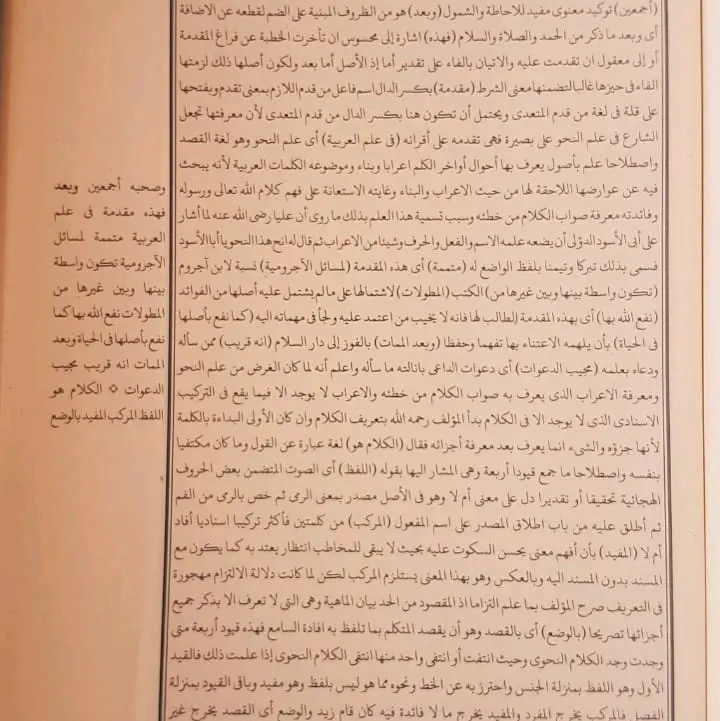 (أجمعين) توكيد معنوى مفيد للاحاطة والشمول (وبعد) هو من الظروف المبنية على الضم لقطعه عن الاضافة
أى وبعد ما ذكر من الحمد والصلاة والسلام (فهذه) اشارة إلى محسوس ان تأخرت الخطبة عن فراغ المقدمة
أو إلى معقول ان تقدمت عليه والاتيان بالفاء على تقدير أما إذ الأصل أما بعد ولكون أصلها ذلك لزمتها
الفاء فى حيزها غالبا لتضمنها معنى الشرط (مقدمة) بكسر الدال اسم فاعل من قدم اللازم بمعنى تقدم وبفتحها
على قلة فى لغة من قدم المتعدى ويحتمل أن تكون هنا بكسر الدال من قدم المتعدى لأن معرفتها تجعل
الشارع فى علم النحو على بصيرة فهى تقدمه على أقرانه (فى علم العربية) أى علم النحو وهو لغة القصد
واصطلاحا علم بأصول يعرف بها أحوال أواخر الكلم اعرابا وبناء وموضوعه الكلمات العربية لأنه يبحث
فيه عن عوارضها اللاحقة لها من حيث الاعراب والبناء وغايته الاستعانة على فهم كلام الله تعالى ورسوله
وفائدته معرفة صواب الكلام من خطئه وسبب تسمية هذا العلم بذلك ما روى أن عليا رضى الله عنه لما أشار
على أبى الأسود الدؤلى أن يضعه علمه الاسم والفعل والحرف وشيئا من الاعراب ثم قال له انح هذا النحو يا أبا الأسود
فسمى بذلك تبركا وتيمنا بلفظ الواضع له (متممة) أى هذه المقدمة (لمسائل الآجرومية) نسبة لابن آجروم
(تكون واسطة بينها وبين غيرها من) الكتب (المطولات) لاشتمالها على مالم يشتمل عليه أصلها من الفوائد
(نفع الله بها) أى بهذه المقدمة الطالب لها فانه لا يخيب من اعتمد عليه ولجأ فى مهماته اليه (كما نفع بأصلها
فى الحياة) بأن يلهمه الاعتناء بها تفهما وحفظا (وبعد الممات) بالفوز إلى دار السلام (انه قريب) ممن سأله
ودعاه بعلمه (مجيب الدعوات) أى دعوات الداعى بانالته ما سأله واعلم أنه لما كان الغرض من علم النحو
ومعرفة الاعراب الذى يعرف به صواب الكلام من خطئه والاعراب لا يوجد الا فيما يقع فى التركيب
الاسنادى الذى لا يوجد الا فى الكلام بدأ المؤلف رحمه الله بتعريف الكلام وان كان الأولى البداءة بالكلمة
لأنها جزؤه والشىء انما يعرف بعد معرفة أجزائه فقال (الكلام هو) لغة عبارة عن القول وما كان مكتفيا
بنفسه واصطلاحا ما جمع قيودا أربعة وهى المشار اليها بقوله (اللفظ) أى الصوت المتضمن بعض الحروف
الهجائية تحقيقا أو تقديرا دل على معنى أم لا وهو فى الأصل مصدر بمعنى الرمى ثم خص بالرمى من الفم
ثم أطلق عليه من باب اطلاق المصدر على اسم المفعول (المركب) من كلمتين فأكثر تركيبا اسناديا أفاد
أم لا (المفيد) بأن أفهم معنى يحسن السكوت عليه بحيث لا يبقى للمخاطب انتظار يعتد به كما يكون مع
المسند بدون المسند اليه وبالعكس وهو بهذا المعنى يستلزم المركب لكن لما كانت دلالة الالتزام مهجورة
فى التعريف صرح المؤلف بما علم التزاما اذ المقصود من الحد بيان الماهية وهى التى لا تعرف الا بذكر جميع
أجزائها تصريحا (بالوضع) أى بالقصد وهو أن يقصد المتكلم بما تلفظ به افادة السامع فهذه قيود أربعة متى
وجدت وجد الكلام النحوى وحيث انتفت أو انتفى واحد منها انتفى الكلام النحوى إذا علمت ذلك فالقيد
الأول وهو اللفظ بمنزلة الجنس واحترز به عن الخط ونحوه مما هو ليس بلفظ وهو مفيد وباقى القيود بمنزلة
الفصل فالمركب يخرج المفرد والمفيد يخرج ما لا فائدة فيه كان قام زيد والوضع أى القصد يخرج غير
وصحبه أجمعين وبعد
فهذه مقدمة فى علم
العربية متممة لمسائل
الآجرومية تكون واسطة
بينها وبين غيرها من
المطولات نفع الله بها كما
نفع بأصلها فى الحياة وبعد
الممات انه قريب مجيب
الدعوات * الكلام هو
اللفظ المركب المفيد بالوضع